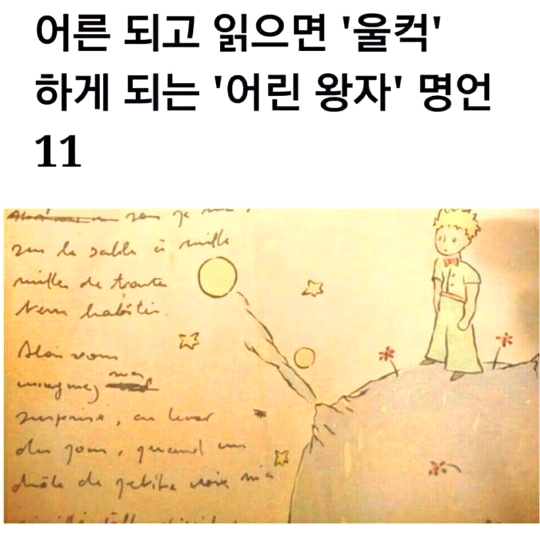 어른 되고 읽으면 '울컥'
하게 되는 '어린 왕자' 명언
11
sur le sable à mille
milles de toute
terre habitée.
Alors vous
surprise, au lever
du jour, quand une
drôle de petite voix m'a